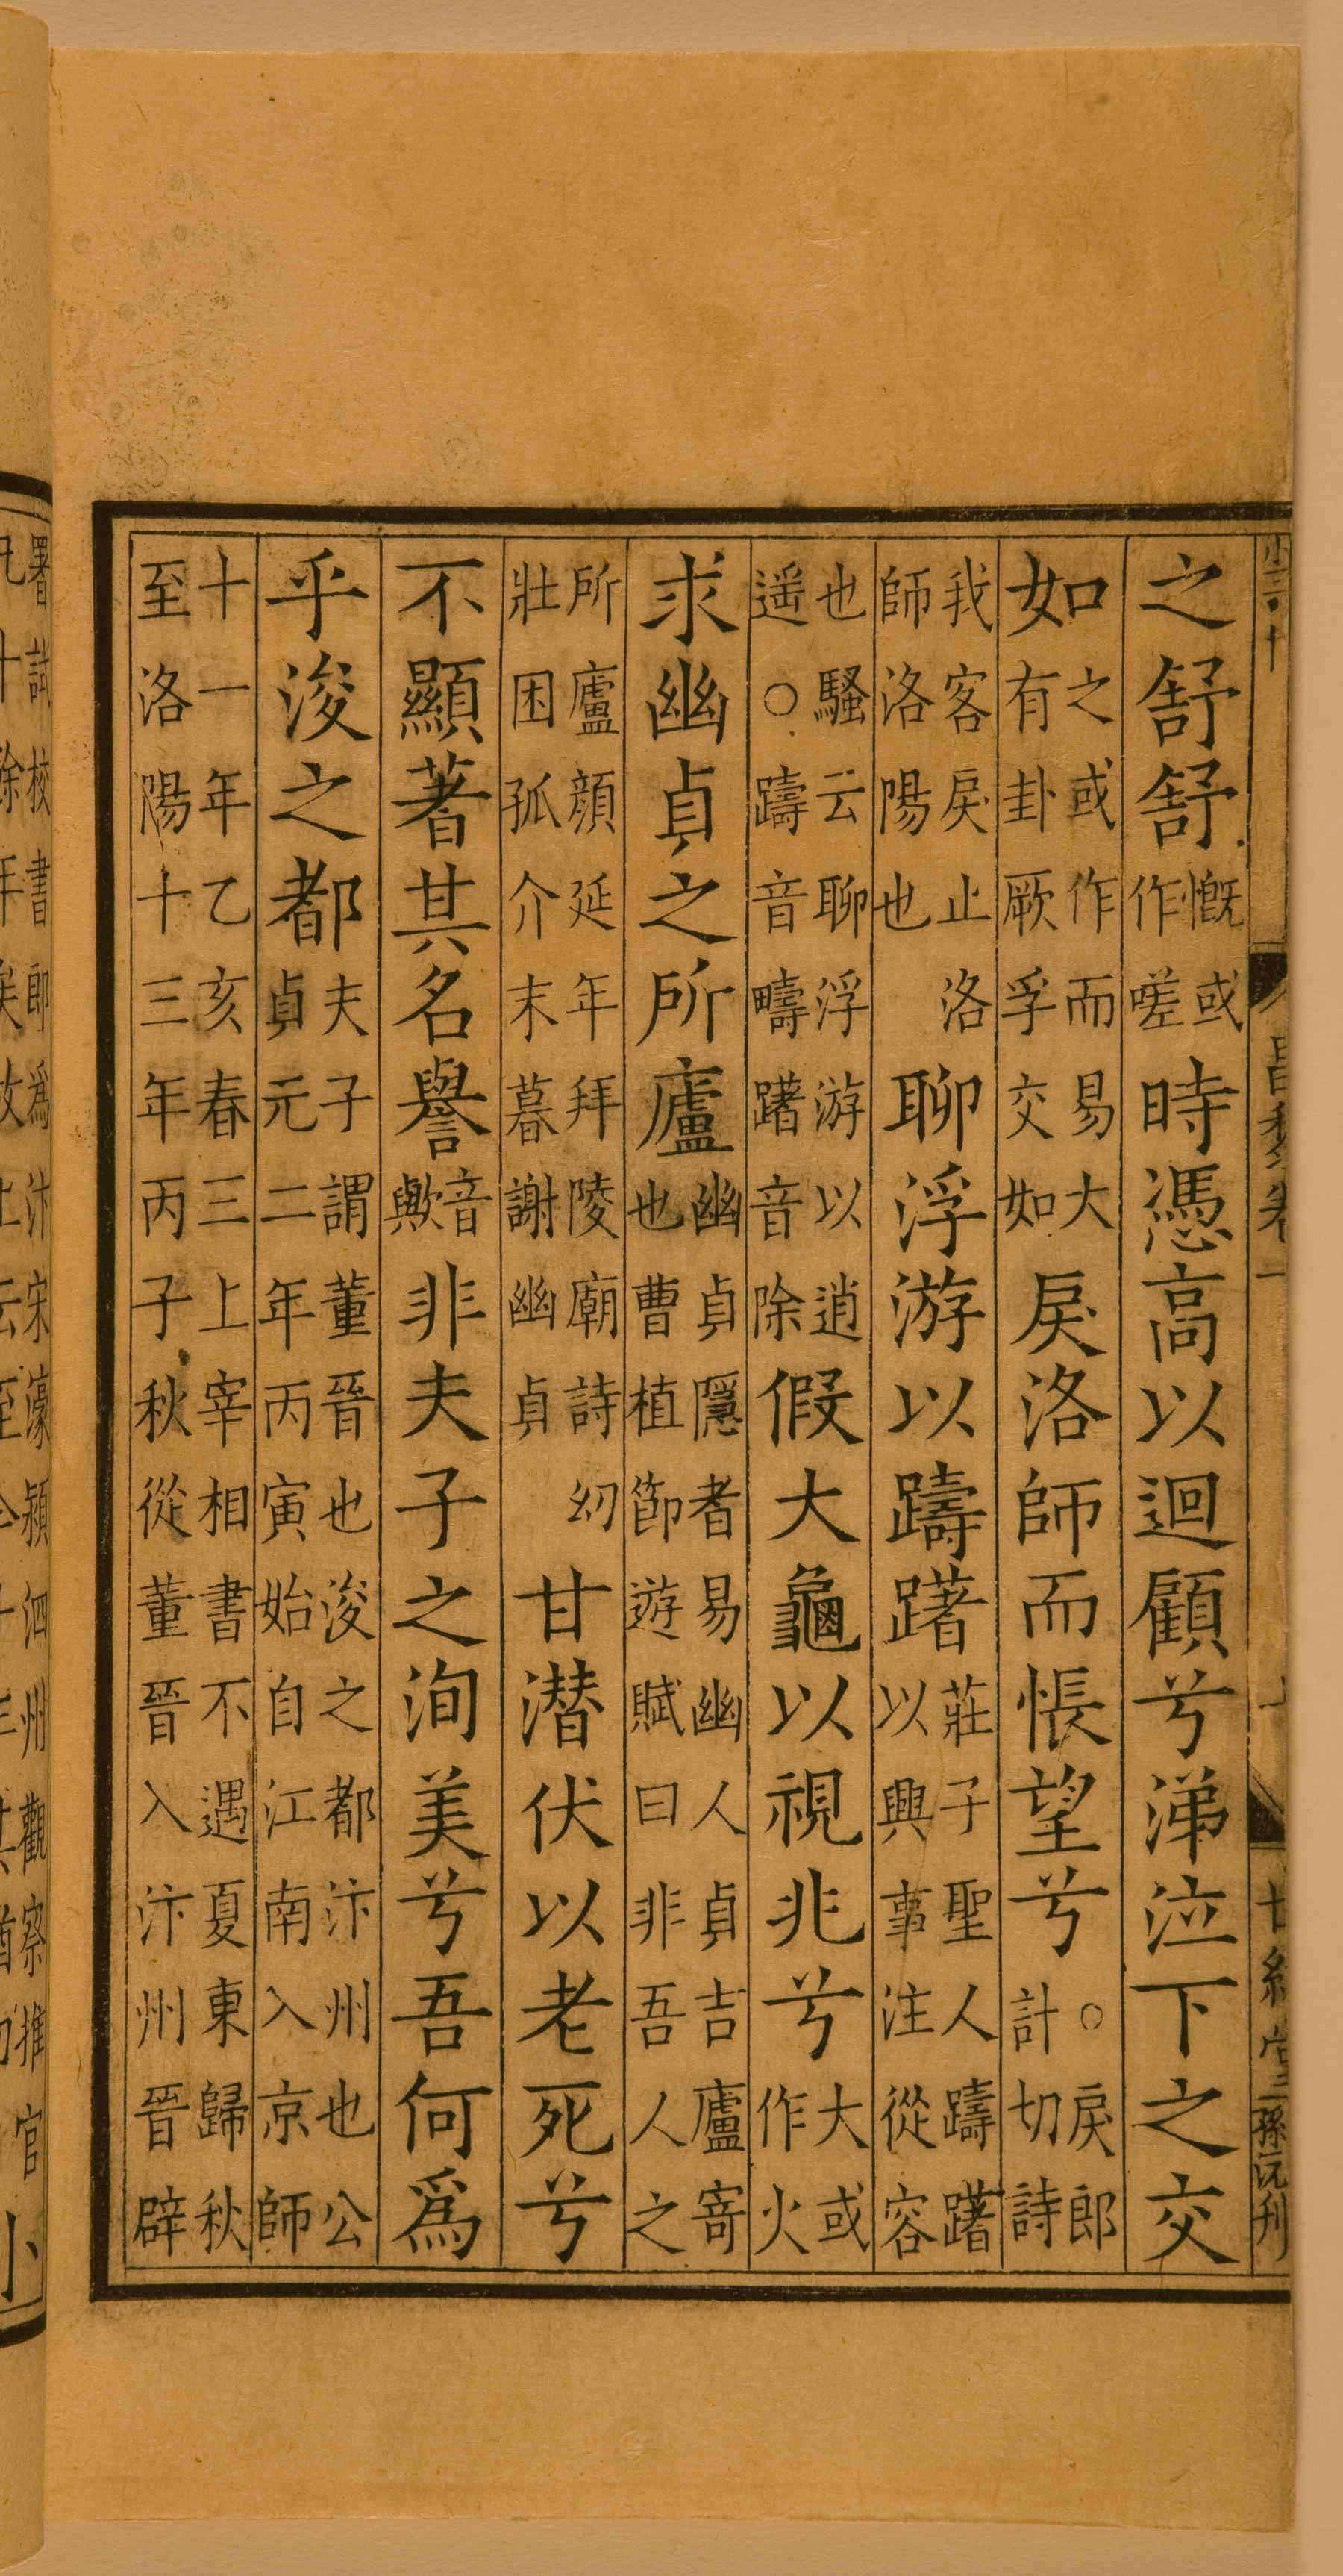 之舒舒慨或作嗟時憑高以迴顧兮涕泣下之交
如如之或作而易大有卦厥孚交如戾洛師而悵望兮○戾郎計切詩
我客戾止洛師洛陽也聊浮游以躊躇莊子聖人躊躇以興事注從容
也騷云聊浮游以逍遥○躊音疇躇音除假大龜以視兆兮大或作火
求幽貞之所廬幽貞隱者易幽人貞吉廬寄也曹植節遊賦曰非吾人之
所廬顔延年拜陵廟詩幼壯困孤介末暮謝幽貞甘潛伏以老死兮
不顯著其名譽音歟非夫子之洵美兮吾何爲
乎浚之都夫子謂董晉也浚之都汴州也公貞元二年丙寅始自江南入京師
十一年乙亥春三上宰相書不遇夏東歸秋至洛陽十三年丙子秋從董晉入汴州晉辟
署試校書郎爲汴宋濠潁泗州觀察推官
孫沅刋